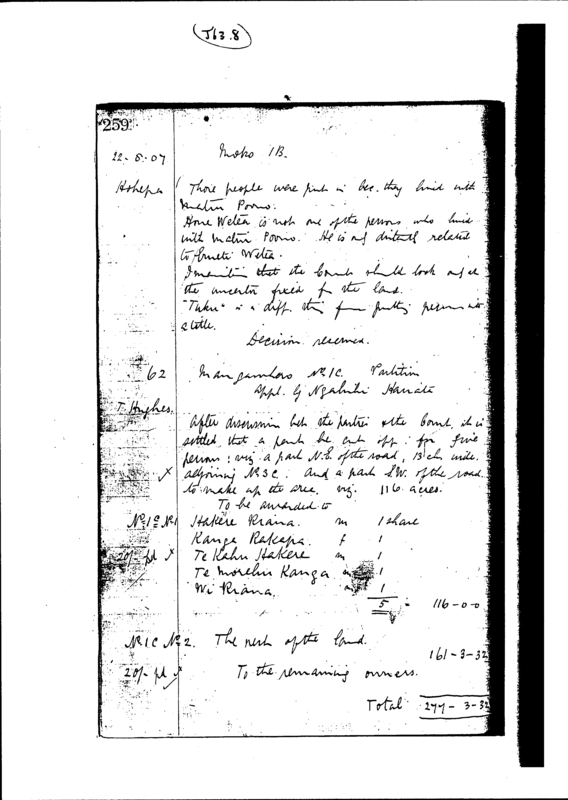 J63.8
259
22-5-07 Moko 1B.
Hohepa Those people were put in bec. they lived with
Matiu Poono.
Hone Wetea is not one of the persons who lived
with Matiu Poono. He is not related
to Wetea.
I that the Court should look at
the ancestor fixed for the land.
"Tuku" is a diff. thing from putting persons into
a title.
Decision reserved.
62 Mangamboro No 1C. Partition
Appl. by Ngahuhi
T. Hughes. After discussion bet. the parties & the Court, it is
settled that a part be cut off for five
persons: viz a part N.E. of the road, 13 ch wide
adjoining No 3C. And a part S.W. of the road
to make up the area, viz. 116 acres.
To be awarded to
No 1C No 1 Hakere Rana. m 1 share
Kanga Rakapa. f 1
20/- pd x Te Kahu Hakere m 1
Te Morehu Kanga m 1
Wi Rana. m 1
5 = 116-0-0
No 1C No 2. The rest of the land.
161-3-32
20/- pd x To the remaining owners.
Total 277-3-32